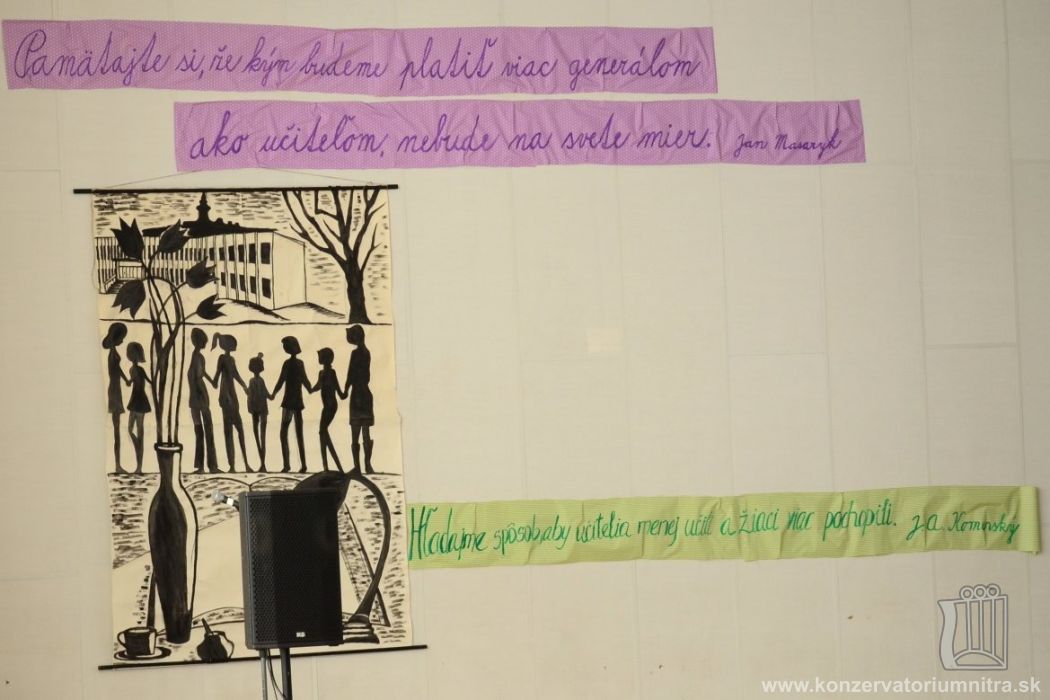 Pamätajte si, že kým budeme platiť viac generálom
ako učiteľom, nebude na svete mier. Jan Masaryk
Hľadajme spôsob, aby učitelia menej učili a žiaci viac pochopili. J. A. Komenský
www.konzervatoriumnitra.sk